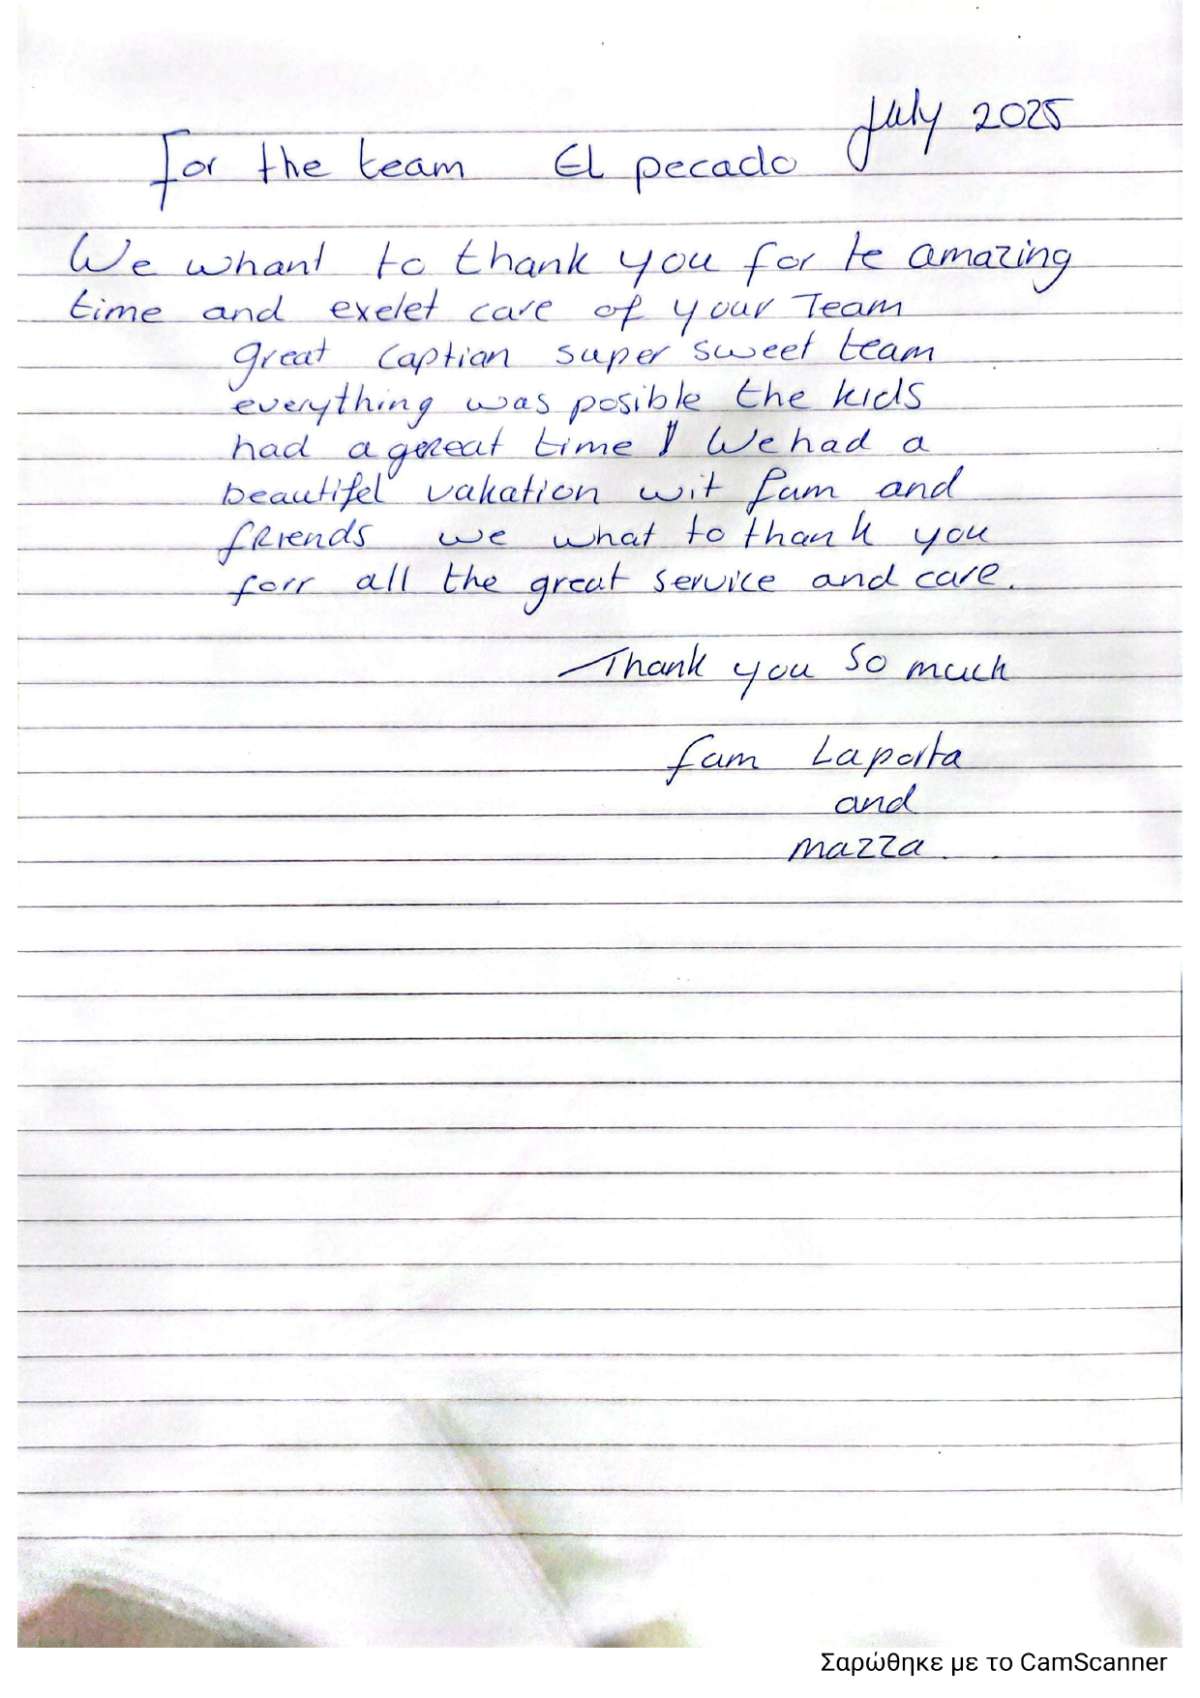 July 2025
For the team El pecado
We whant to thank you for te amazing
time and exelet care of your Team
great caption super sweet team
everything was posible the kids
had a gereat time! We had a
beautifel vakation wit fam and
friends we what to thank you
forr all the great service and care.
Thank you so much
fam Laporta
and
mazza.
Σαρώθηκε με το CamScanner